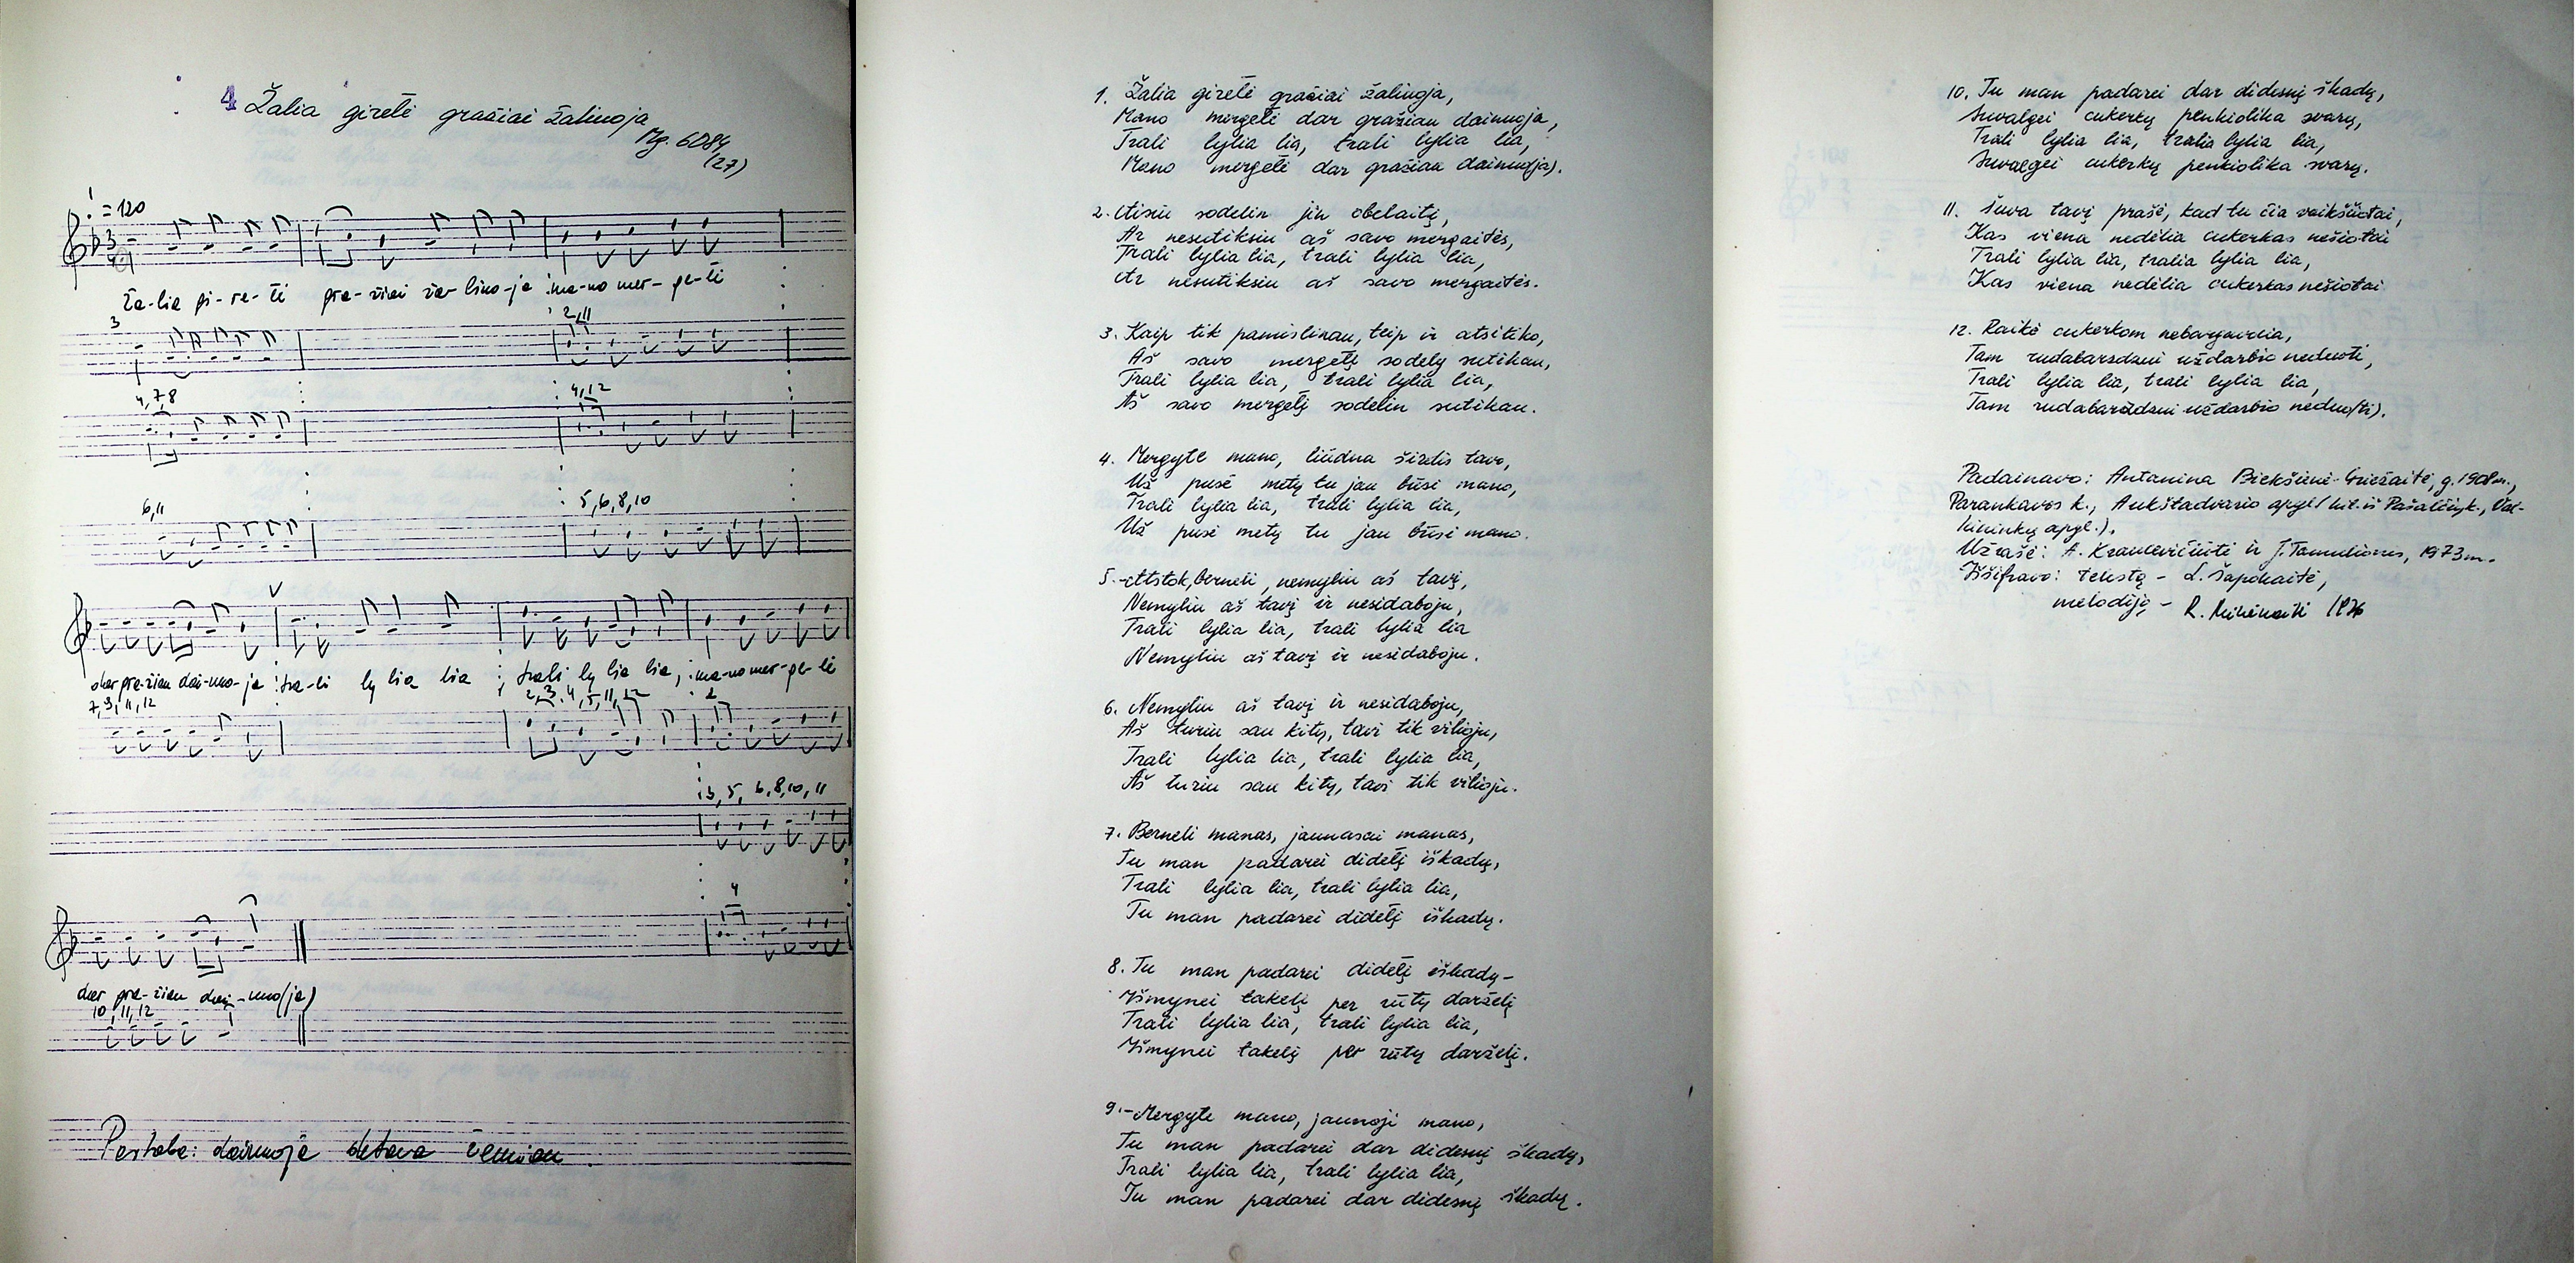 4 Žalia girelė gražiai žaliuoja
Mg. 6084
(27)
= 120
3
Ža-lia gi-re-lė gra-žiai ža-liuo-ja ma-no mer-ge-lė
3
2, 11
4, 7, 8
4, 12
6, 11
5, 6, 8, 10
dar gra-žiau dai-nuo-ja tra-li ly lia lia trali ly lia lia, ma-no mer-ge-lė
7, 9, 11, 12
2, 3, 4, 5, 11, 12
2
3, 5, 6, 8, 10, 11
4
dar gra-žiau dai-nuo(ja)
10, 11, 12
Pastaba: dainuoja oktava žemiau.
1. Žalia girelė gražiai žaliuoja,
Mano mergelė dar gražiau dainuoja,
Trali lylia lia, trali lylia lia,
Mano mergelė dar gražiau dainuo(ja).
2. Aisiu sodelin jin obelaitę,
Ar nesutiksiu aš savo mergaitės,
Trali lylia lia, trali lylia lia,
Ar nesutiksiu aš savo mergaitės.
3. Kaip tik pamislinau, teip ir atsitiko,
Aš savo mergelę sodely sutikau,
Trali lylia lia, trali lylia lia,
Aš savo mergelę sodelin sutikau.
4. Mergyte mano, liūdna širdis tavo,
Už pusė metų tu jau būsi mano,
Trali lylia lia, trali lylia lia,
Už pusė metų tu jau būsi mano.
5. - Atstok, berneli, nemyliu aš tavę,
Nemyliu aš tavę ir nesidaboju,
Trali lylia lia, trali lylia lia
Nemyliu aš tavę ir nesidaboju.
6. Nemyliu aš tavę ir nesidaboju,
Aš turiu sau kitų, tavi tik vilioju,
Trali lylia lia, trali lylia lia,
Aš turiu sau kitų, tavi tik vilioju.
7. Berneli manas, jaunasai manas,
Tu man padarei didelį iškadų,
Trali lylia lia, trali lylia lia,
Tu man padarei didelį iškadų.
8. Tu man padarei didelį iškadų-
Išmynei takelį per rūtų darželį
Trali lylia lia, trali lylia lia,
Išmynei takelį per rūtų darželį.
9. - Mergyte mano, jaunoji mano,
Tu man padarei dar didesnį škadų,
Trali lylia lia, trali lylia lia,
Tu man padarei dar didesnį škadų.
10. Tu man padarei dar didesnį škadų,
Suvalgei cukerkų penkiolika svarų,
Trali lylia lia, tralia lylia lia,
Suvalgei cukerkų penkiolika svarų.
11. Šuva tavę prašė, kad tu čia vaikščiotai,
Kas viena nedėlia cukerkas nešiotai
Trali lylia lia, tralia lylia lia,
Kas viena nedėlia cukerkas nešiotai
12. Raikė cukerkom
Tam rudabarzdžui uždarbio neduoti,
Trali lylia lia, trali lylia lia,
Tam rudabarzdžui uždarbio neduo(ti).
Padainavo: Antanina Biekšienė-Griežaitė, g. 1908 m.,
Parankavos k., Aukštadvario apyl. (kil. iš k., Val-
kininkų apyl.).
Užrašė: A. Krancevičiūtė ir J. Tamulionis, 1973 m.
Iššifravo: tekstą - L. Šapokaitė,
melodiją - R. Mikėnaitė 1976